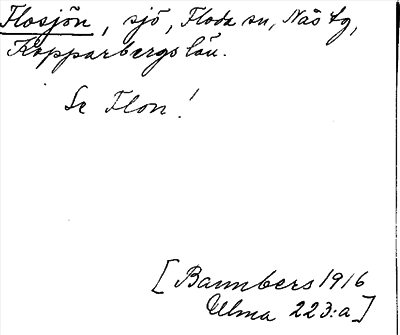 Flosjön, sjö, Floda sn, Näs tg,
Kopparbergs län.
Se Flon!
[Bannbers 1916
Ulma 223:a]